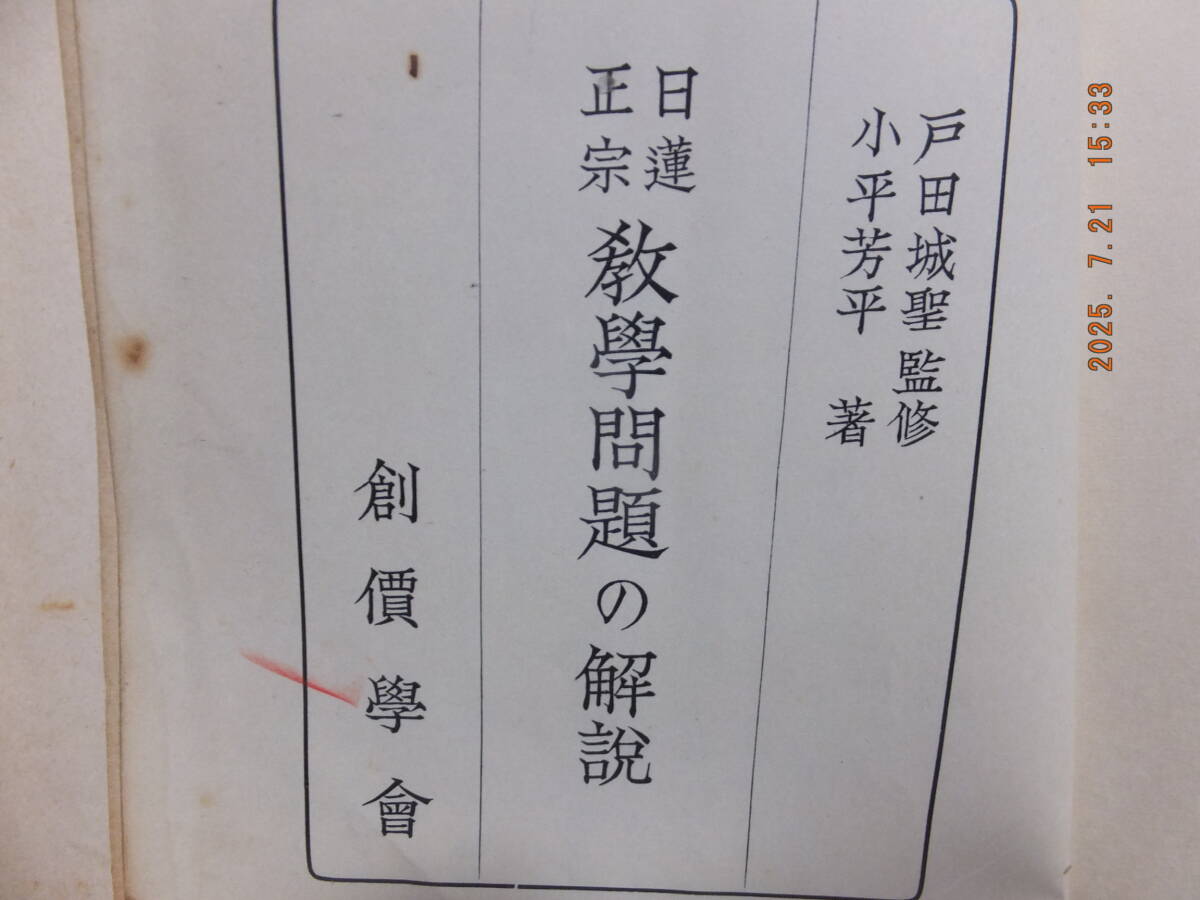 戸田城聖 監修
小平芳平 著
日蓮
正宗
教學問題の解說
創價學會
2025. 7.21 15:33